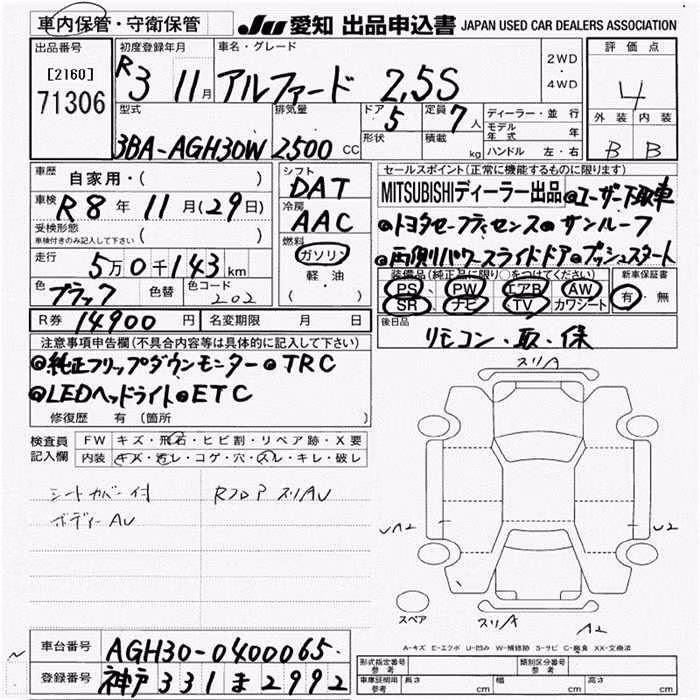 車内保管・守衛保管
JU 愛知 出品申込書 JAPAN USED CAR DEALERS ASSOCIATION
出品番号 初度登録年月 車名・グレード 2WD・4WD 評価点
[2160]
71306 R3 11月 アルファード 2.5S 4
型式 排気量 ドア 5 定員 7人 ディーラー・並行 外装 内装
3BA-AGH30W 2500 CC 形状 積載 kg モデル年式 年 B B
ハンドル 左・右
車歴 自家用・( ) シフト DAT セールスポイント(正常に機能するものに限ります)
車検 R8年 11月(29日) 冷房 AAC MITSUBISHIディーラー出品◎ユーザー下取車
受検形態 ( ) ◎トヨタセーフティセンス◎サンルーフ
車検付きのみ記入して下さい
燃料 ガソリン ◎両側パワースライドドア◎プッシュスタート
走行 5万0千143km 軽油 ( ) 装備品(純正品に限り○をつけてください) 新車保証書
色 ブラック 色替 色コード 202 PS PW エアB AW 有・無
SR ナビ TV カワシート
R券 14900円 名変期限 月 日 後日品
リモコン・取・保
注意事項申告欄(不具合内容等は具体的に記入して下さい)
◎純正フリップダウンモニター◎TRC
◎LEDヘッドライト◎ETC
修復歴 有 (箇所 )
検査員記入欄 FW キズ・飛石・ヒビ割・リペア跡・X要
内装 キズ・汚レ・コゲ・穴・スレ・キレ・破レ
シートカバー付 Rフロア スリAU
ボディーAU
スリA
A2
U2
スペア
スリA
A2
A-キズ E-エクボ U-凹み W-補修跡 S-サビ C-腐食 XX-交換済
車台番号 AGH30-0400065
登録番号 神戸 331 ま 2992
形式指定番号 参考 類別区分番号 参考
車庫証明用 参考 長さ cm 幅 cm 高さ cm